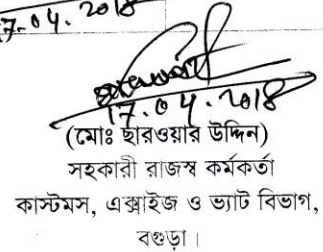 17.04.2018
17.04.2018
(মোঃ ছারওয়ার উদ্দিন)
সহকারী রাজস্ব কর্মকর্তা
কাস্টমস, এক্সাইজ ও ভ্যাট বিভাগ,
বগুড়া।